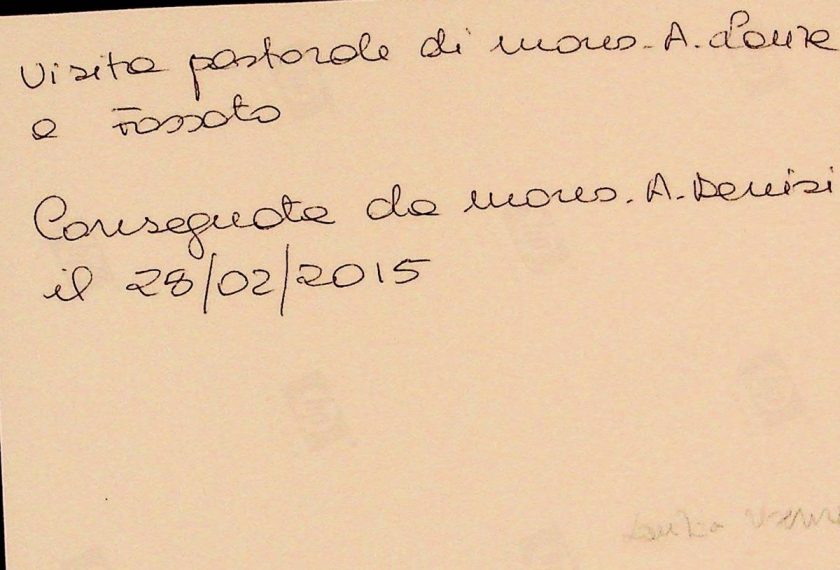 Visita pastorale di mons. A. Lanza
a Fossato
Consegnata da mons. A. Denisi
il 28/02/2015